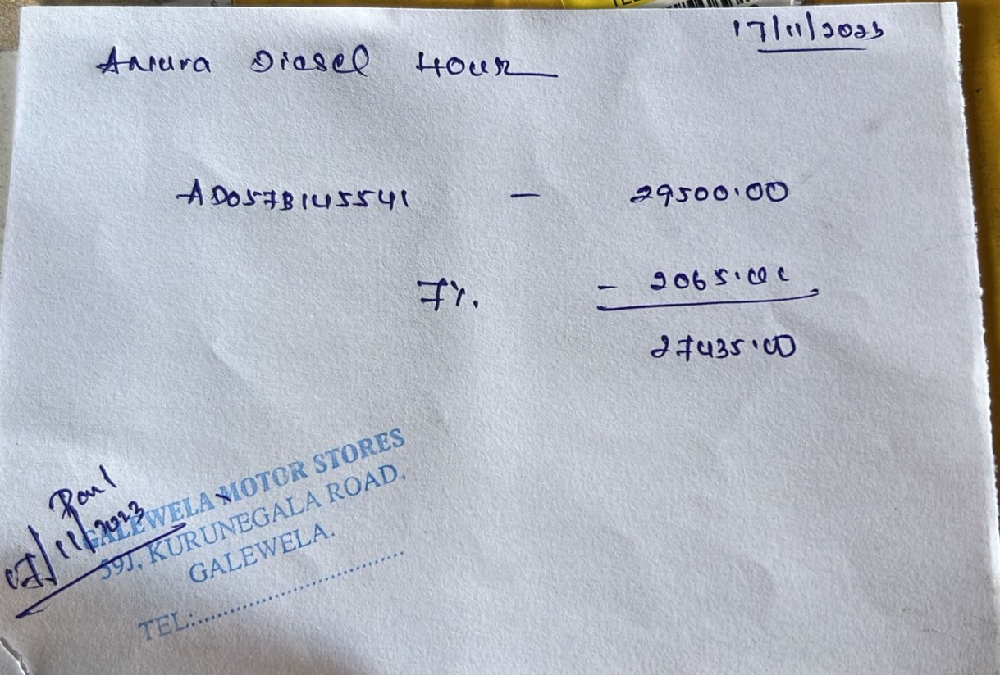 17/11/2023
Anura Diesel Hour
AD057B145541 – 29500.00
7%. – 2065.00
27435.00
Paid
07/11/2023
GALEWELA MOTOR STORES
59J, KURUNEGALA ROAD,
GALEWELA.
TEL:..............................